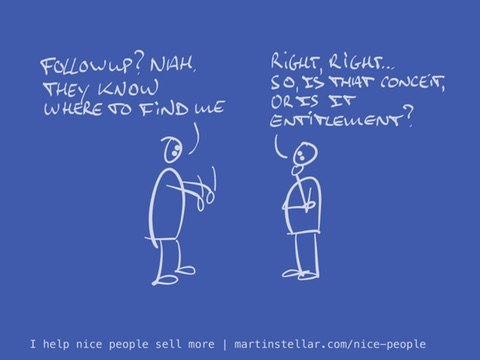 FOLLOWUP? NAH,
THEY KNOW
WHERE TO FIND ME
RIGHT, RIGHT...
SO, IS THAT CONCEIT,
OR IS IT
ENTITLEMENT?
I help nice people sell more | martinstellar.com/nice-people